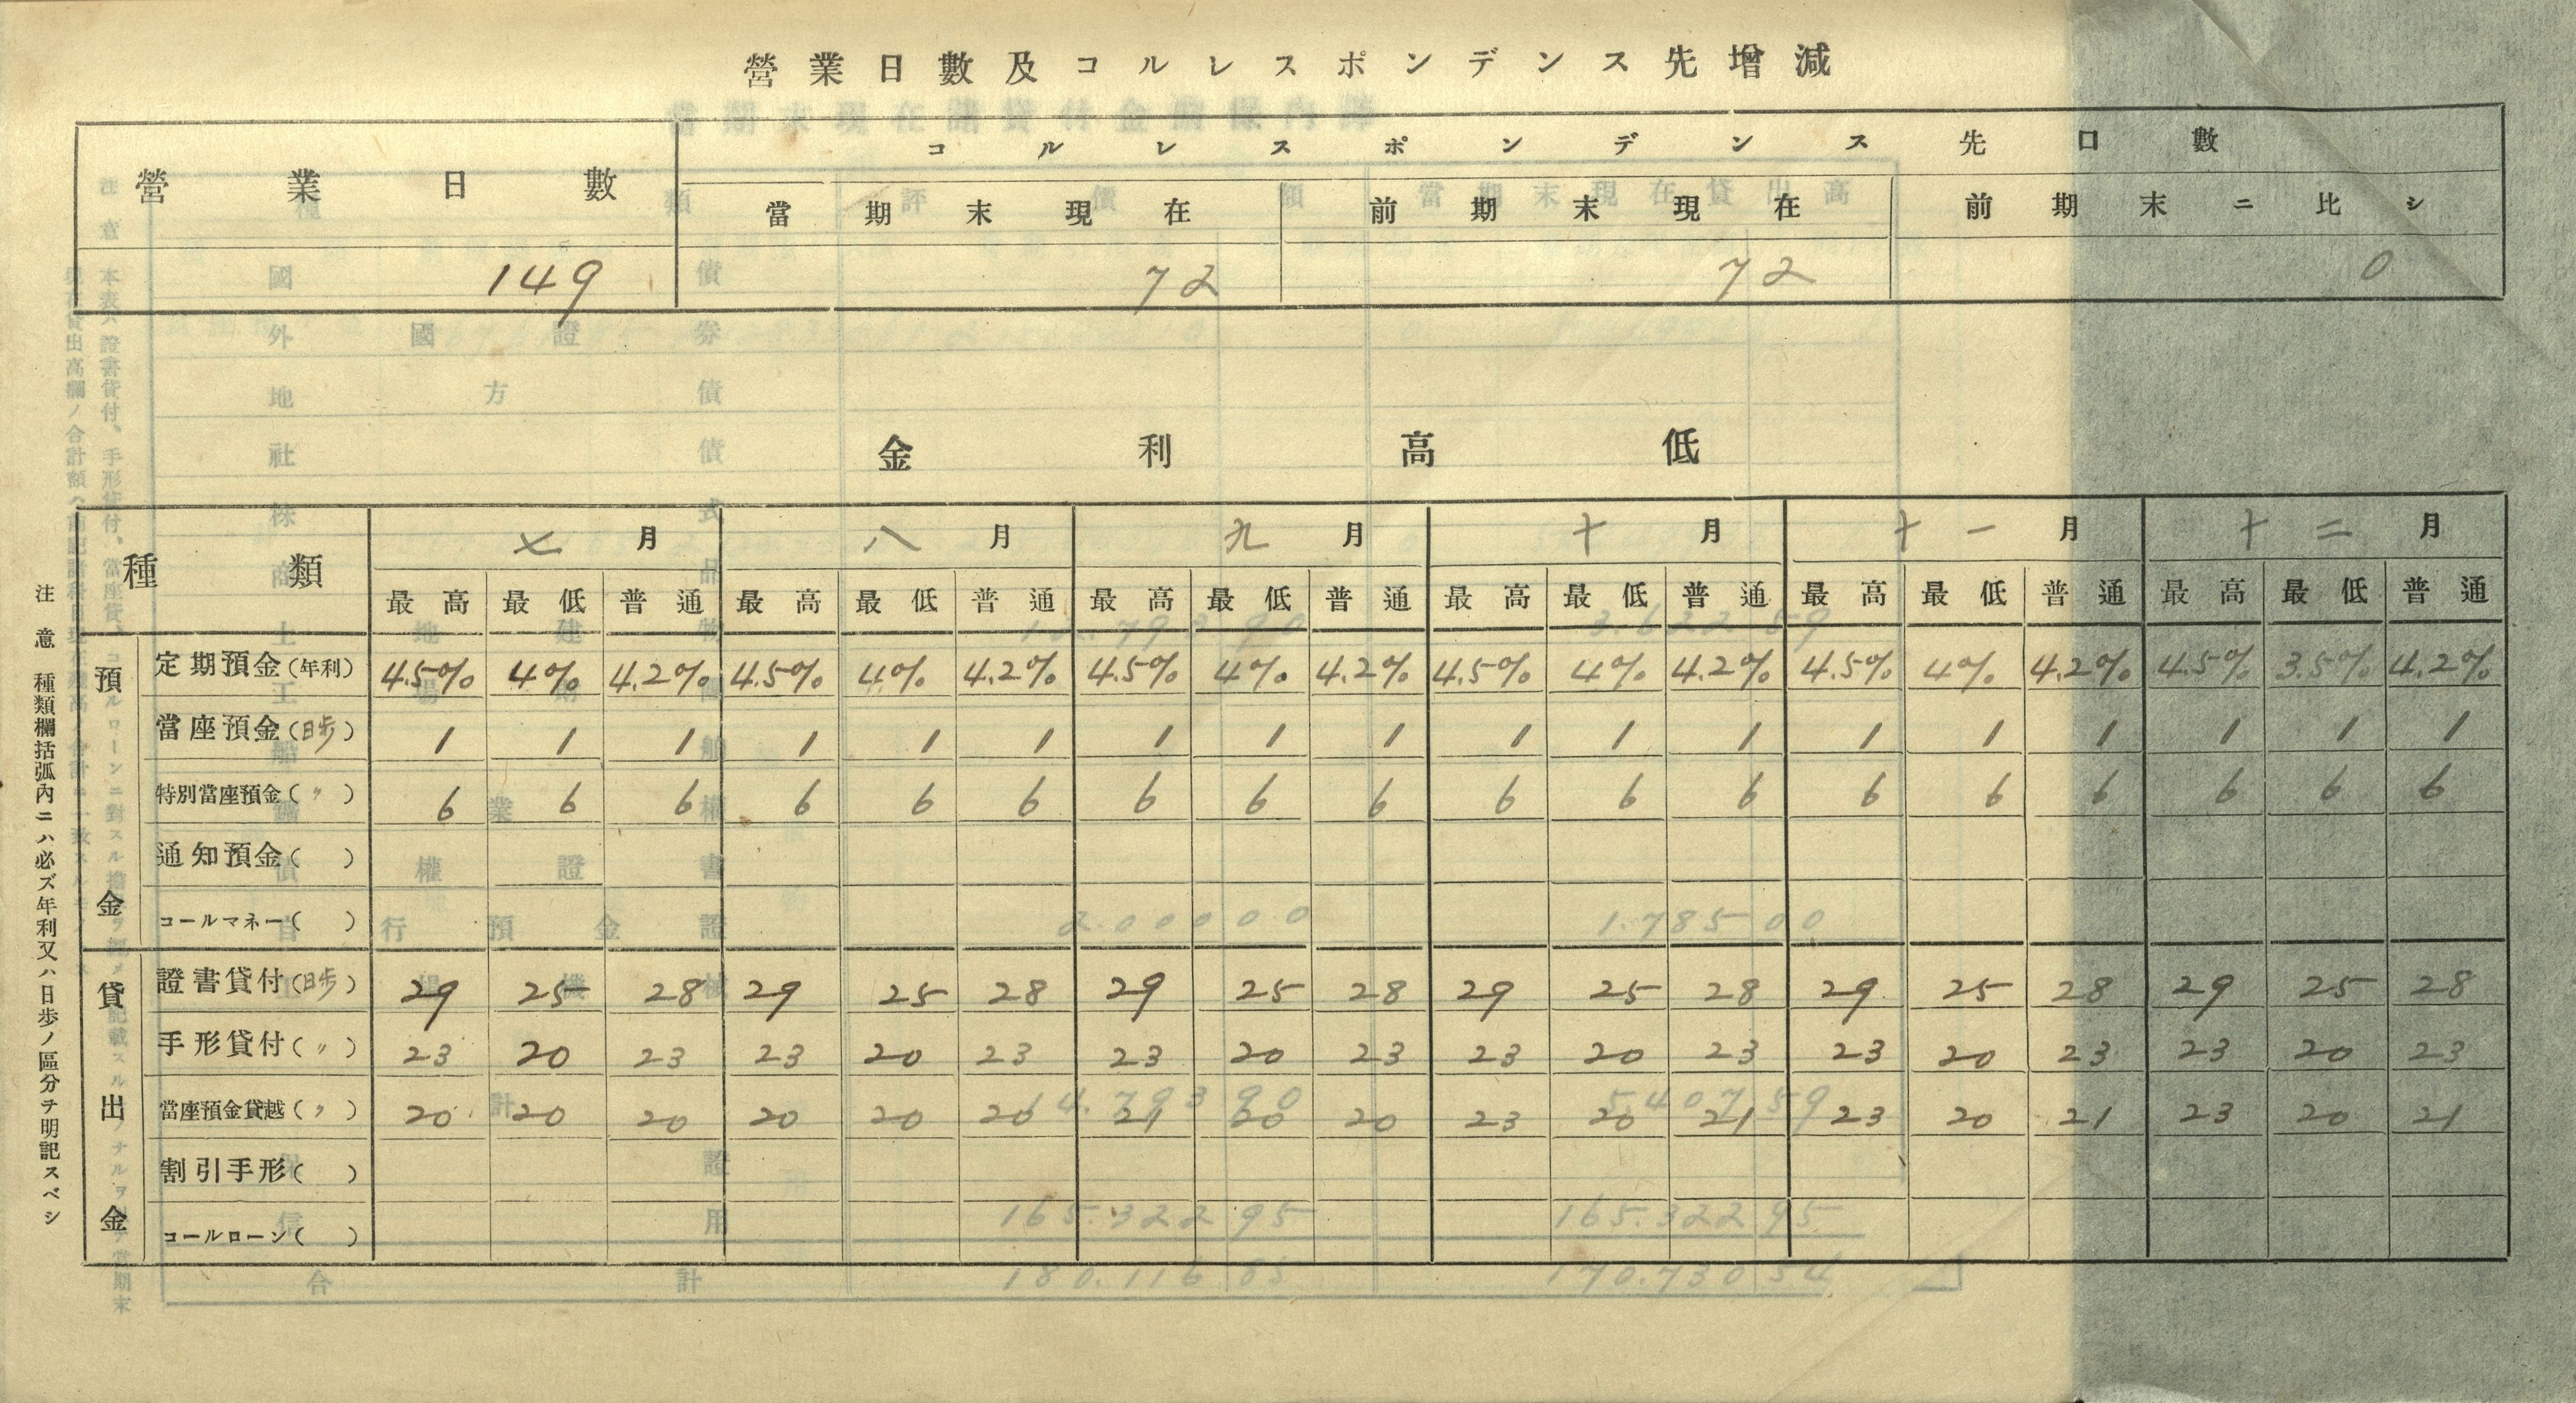 營業日數及コルレスポンデンス先增減
營業日數 コルレスポンデンス先口數
當期末現在 前期末現在 前期末ニ比シ
149 72 72 0
金利高低
種類 七月 八月 九月 十月 十一月 十二月
最高 最低 普通 最高 最低 普通 最高 最低 普通 最高 最低 普通 最高 最低 普通 最高 最低 普通
預金
定期預金(年利) 4.5% 4% 4.2% 4.5% 4% 4.2% 4.5% 4% 4.2% 4.5% 4% 4.2% 4.5% 4% 4.2% 4.5% 3.5% 4.2%
當座預金(日歩) 1 1 1 1 1 1 1 1 1 1 1 1 1 1 1 1 1 1
特別當座預金(〃) 6 6 6 6 6 6 6 6 6 6 6 6 6 6 6 6 6 6
通知預金( )
コールマネー( )
貸出金
證書貸付(日歩) 29 25 28 29 25 28 29 25 28 29 25 28 29 25 28 29 25 28
手形貸付(〃) 23 20 23 23 20 23 23 20 23 23 20 23 23 20 23 23 20 23
當座預金貸越(〃) 20 20 20 20 20 20 21 20 20 23 20 21 23 20 21 23 20 21
割引手形( )
コールローン( )
注意 種類欄括弧內ニハ必ズ年利又ハ日歩ノ區分ヲ明記スベシ